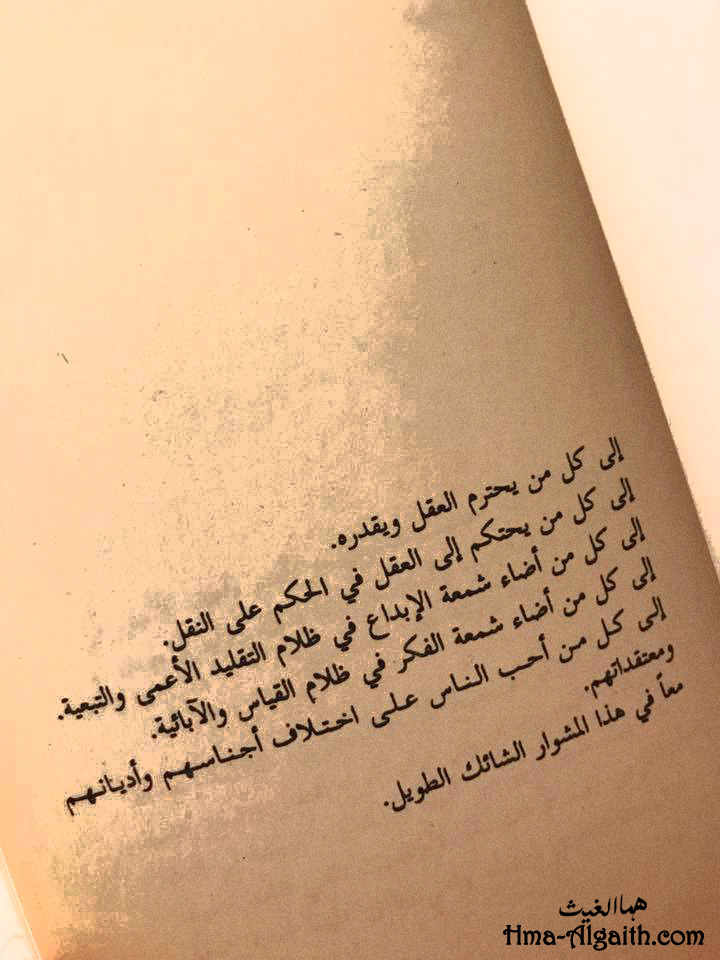 إلى كل من يحترم العقل ويقدره.
إلى كل من يحتكم إلى العقل في الحكم على النقل.
إلى كل من أضاء شمعة الإبداع في ظلام التقليد الأعمى والتبعية.
إلى كل من أضاء شمعة الفكر في ظلام القياس والآبائية.
إلى كل من أحب الناس على اختلاف أجناسهم وأديانهم
ومعتقداتهم.
معاً في هذا المشوار الشائك الطويل.
هماالغيث
Hma-Algaith.com